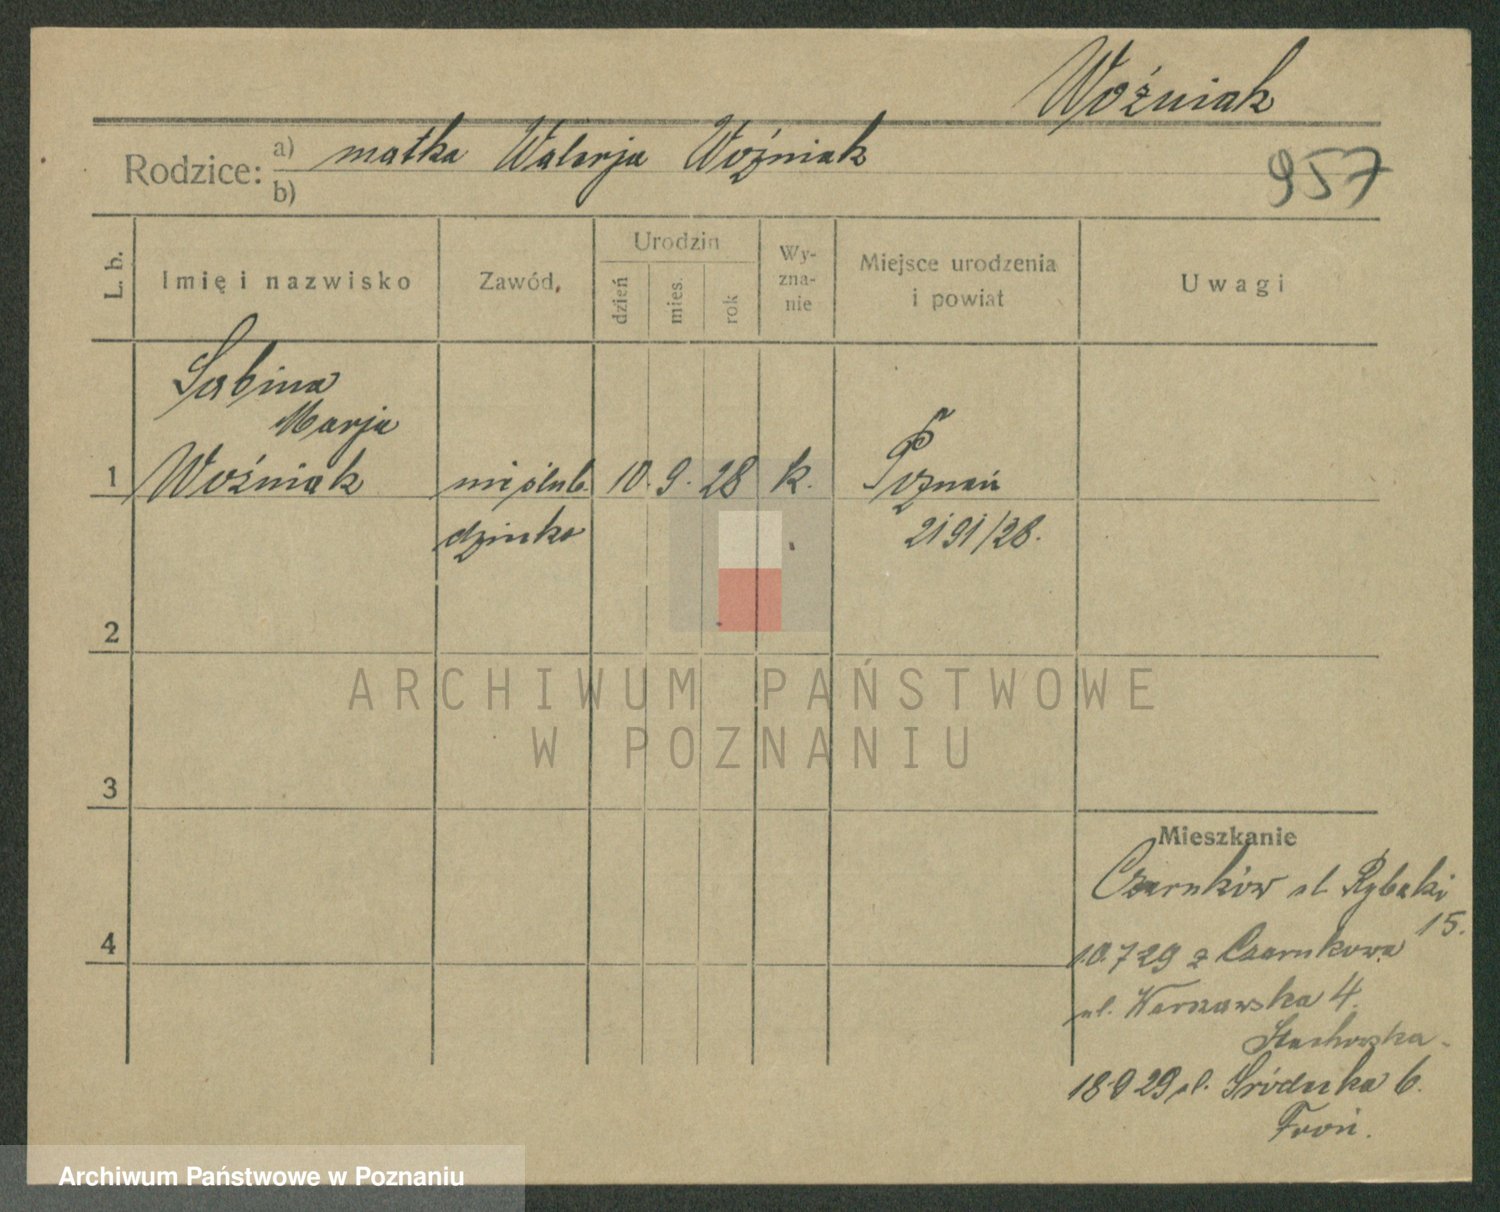 Woźniak
Rodzice: a) matka Walerja Woźniak
b)
957
L. b.
Imię i nazwisko
Zawód,
Urodzin
dzień
mies.
rok
Wy-
zna-
nie
Miejsce urodzenia
i powiat
Uwagi
Sabina
Marja
1 Woźniak nieślub. 10. 9. 28 k. Poznań
dziecko 2191/28.
2
3
4
Mieszkanie
Czarnków ul. Rybaki
15.
10.7 29 z Czarnkowa
ul. Warszawska 4.
Stachowska
18 9 29 ul. Śródecka 6.
Troń.
ARCHIWUM PAŃSTWOWE
W POZNANIU
Archiwum Państwowe w Poznaniu